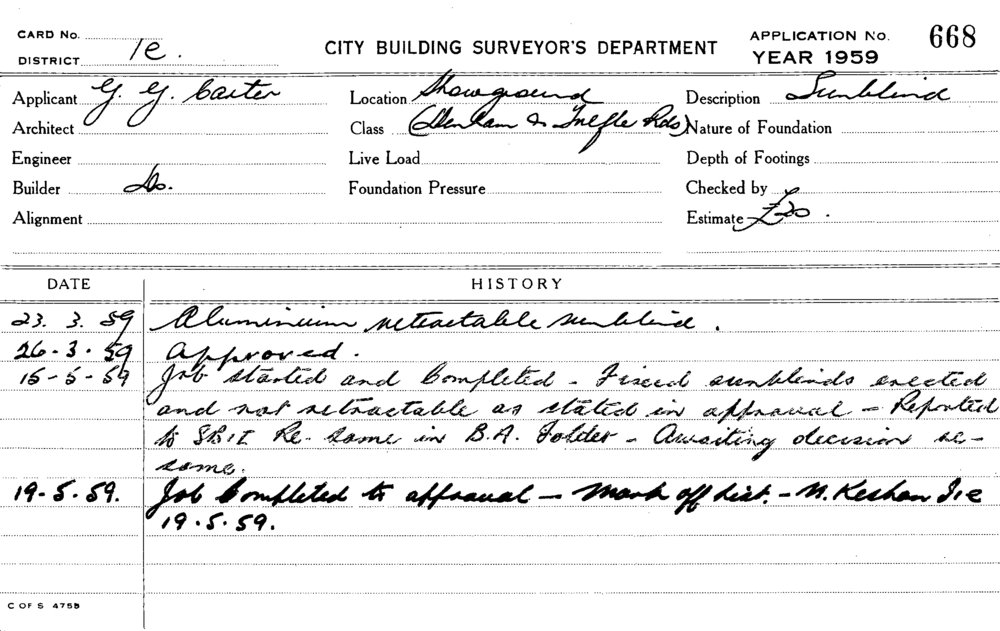 CARD No.
DISTRICT 1e.
CITY BUILDING SURVEYOR'S DEPARTMENT
APPLICATION No. 668
YEAR 1959
Applicant G. G. Carter
Location Showground
Description Sunblind
Architect
Class (Denham & Rds)
Nature of Foundation
Engineer
Live Load
Depth of Footings
Builder Do.
Foundation Pressure
Checked by
Alignment
Estimate £20.
DATE HISTORY
23. 3. 59 Aluminium retractable sunblind.
26-3-59 Approved.
15-5-59 Job started and Completed - Fixed sunblinds erected
and not retractable as stated in approval - Reported
to Re. Same in B.A. Folder - Awaiting decision re-
same.
19-5-59. Job Completed to approval - Mark off List. - M. Keshan I.1e
19.5.59.
C OF S 475B